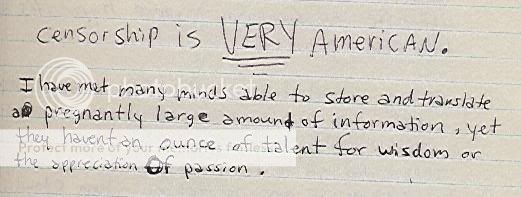 censorship is VERY AMERICAN.
I have met many minds able to store and translate
a pregnantly large amount of information, yet
they haven't an ounce of talent for wisdom or
the appreciation of passion.
photobucket
Protect more of your memories for less!